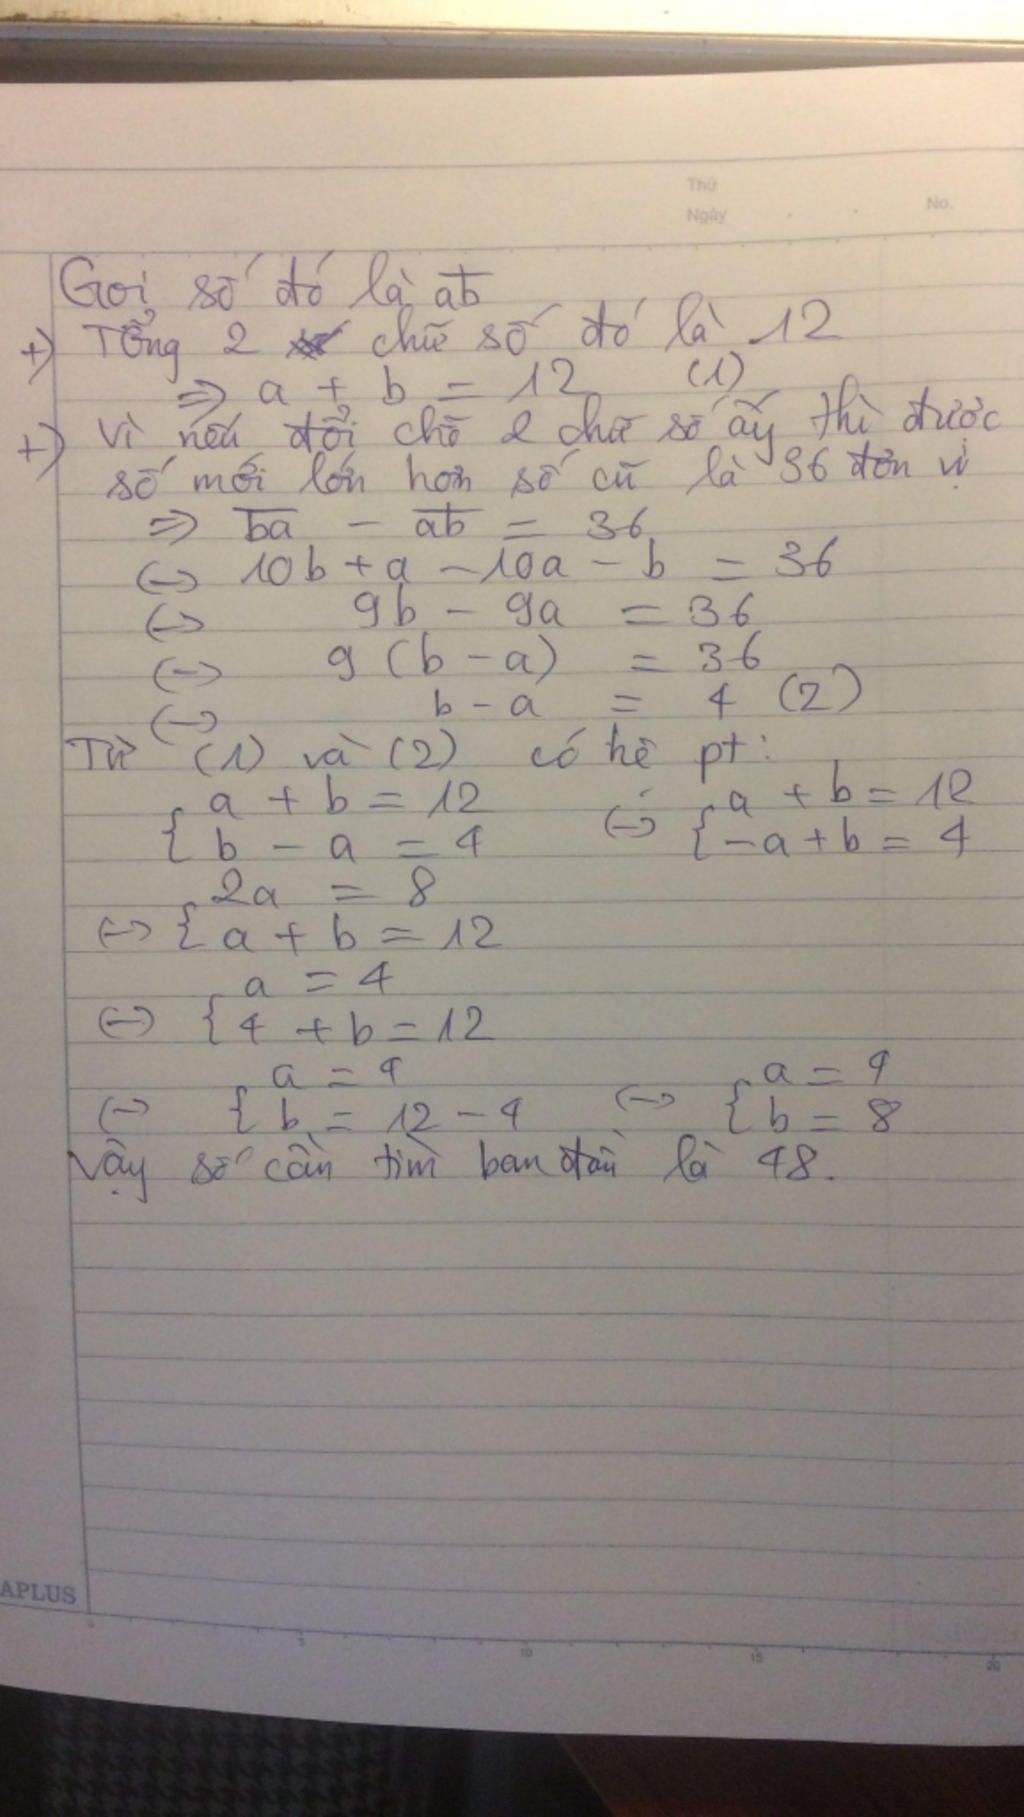 Thứ
Ngày No.
Gọi số đó là ab
+) Tổng 2 chữ số đó là 12
=> a + b = 12 (1)
+) Vì nếu đổi chỗ 2 chữ số ấy thì được
số mới lớn hơn số cũ là 36 đơn vị
=> ba - ab = 36
<=> 10b + a - 10a - b = 36
<=> 9b - 9a = 36
<=> 9 (b - a) = 36
<=> b - a = 4 (2)
Từ (1) và (2) có hệ pt:
{ a + b = 12 <=> { a + b = 12
{ b - a = 4 { -a + b = 4
2a = 8
<=> { a + b = 12
a = 4
<=> { 4 + b = 12
a = 4 a = 4
<=> { b = 12 - 4 <=> { b = 8
Vậy số cần tìm ban đầu là 48.
APLUS
0 5 10 15 20